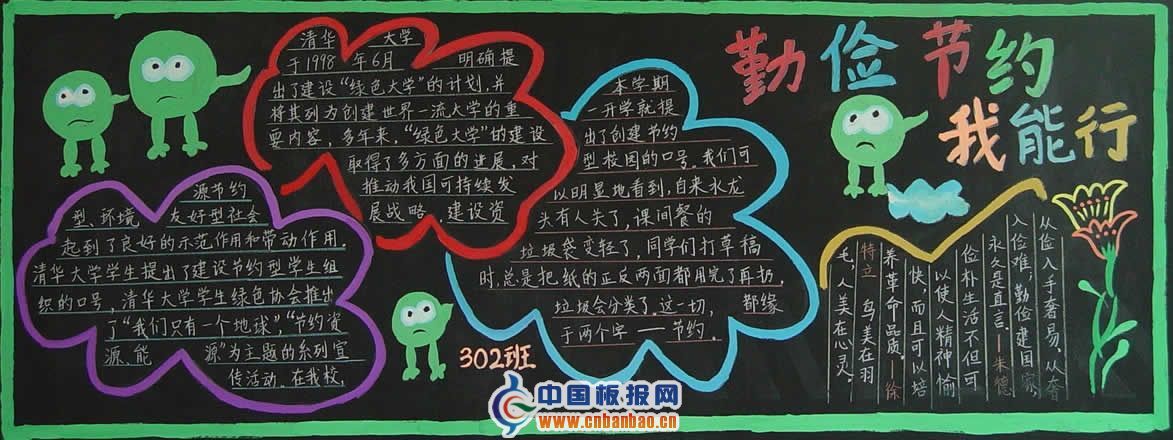 勤俭节约
我能行
清华大学
于1998年6月 明确提
出了建设“绿色大学”的计划,并
将其列为创建世界一流大学的重
要内容,多年来,“绿色大学”的建设
取得了多方面的进展,对
推动我国可持续发
展战略,建设资
源节约
型、环境友好型社会
起到了良好的示范作用和带动作用.
清华大学学生提出了建设节约型学生组
织的口号,清华大学学生绿色协会推出
了“我们只有一个地球”,“节约资
源、能源”为主题的系列宣
传活动.在我校,
本学期
一开学就提
出了创建节约
型校园的口号.我们可
以明显地看到,自来水龙
头有人关了,课间餐的
垃圾袋变轻了,同学们打草稿
时,总是把纸的正反两面都用完了再扔,
垃圾会分类了.这一切,都缘
于两个字——节约.
从俭入手奢易、从奢
入俭难,勤俭建国家,
永久是直言.—朱德
俭朴生活不但可
以使人精神愉
快,而且可以培
养革命品质.—徐
特立 鸟美在羽
毛,人美在心灵。
302班
中国板报网
www.cnbanbao.cn